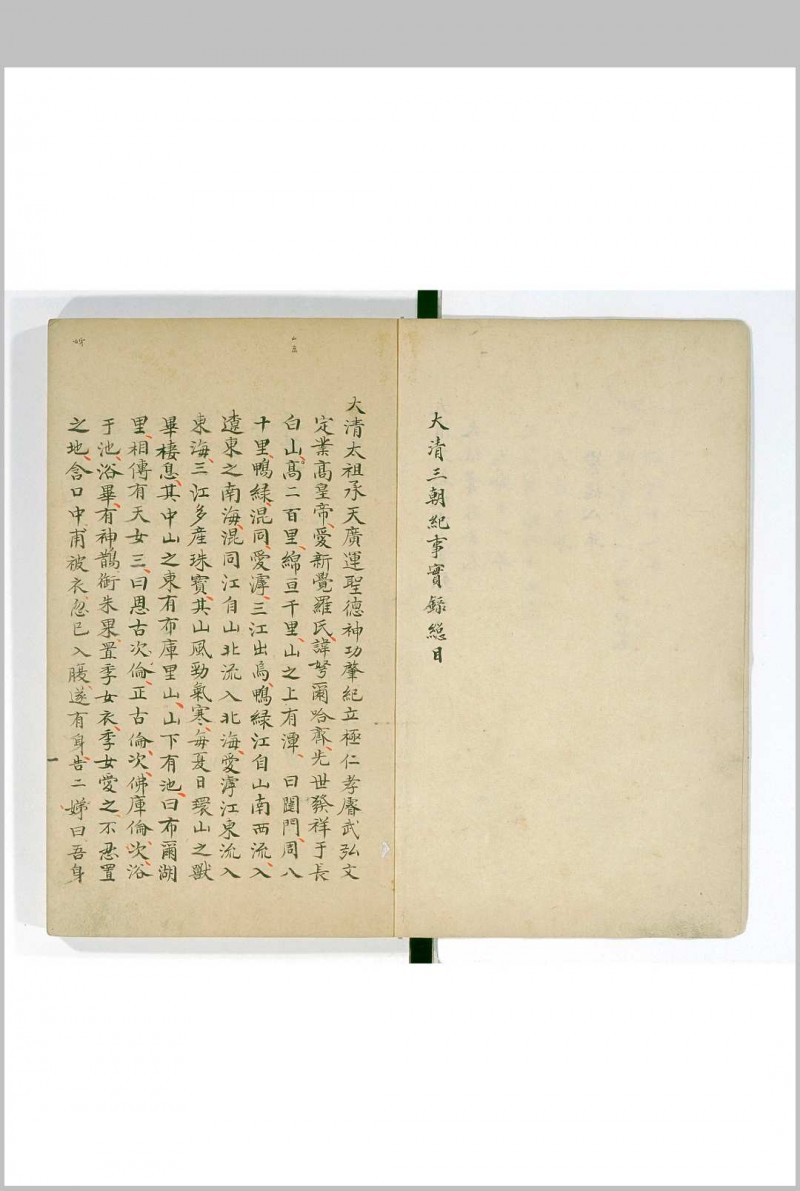 大清三朝紀事實錄總目
大清太祖承天廣運聖德神功肇紀立極仁孝睿武弘文
定業高皇帝愛新覺羅氏諱弩爾哈齊先世發祥于長
白山高二百里綿亘千里山之上有潭曰闥門周八
十里鴨綠混同愛滹三江出焉鴨綠江自山南西流入
遼東之南海混同江自山北流入北海愛滹江東流入
東海三江多産珠寶其山風勁氣寒每夏日環山之獸
畢棲息其中山之東有布庫里山山下有池曰布爾湖
里相傳有天女三曰恩古次倫正古倫次佛庫倫次浴
于池浴畢有神鵲銜朱果置季女衣季女愛之不忍置
之地含口中甫被衣忽已入腹遂有身告二娣曰吾身